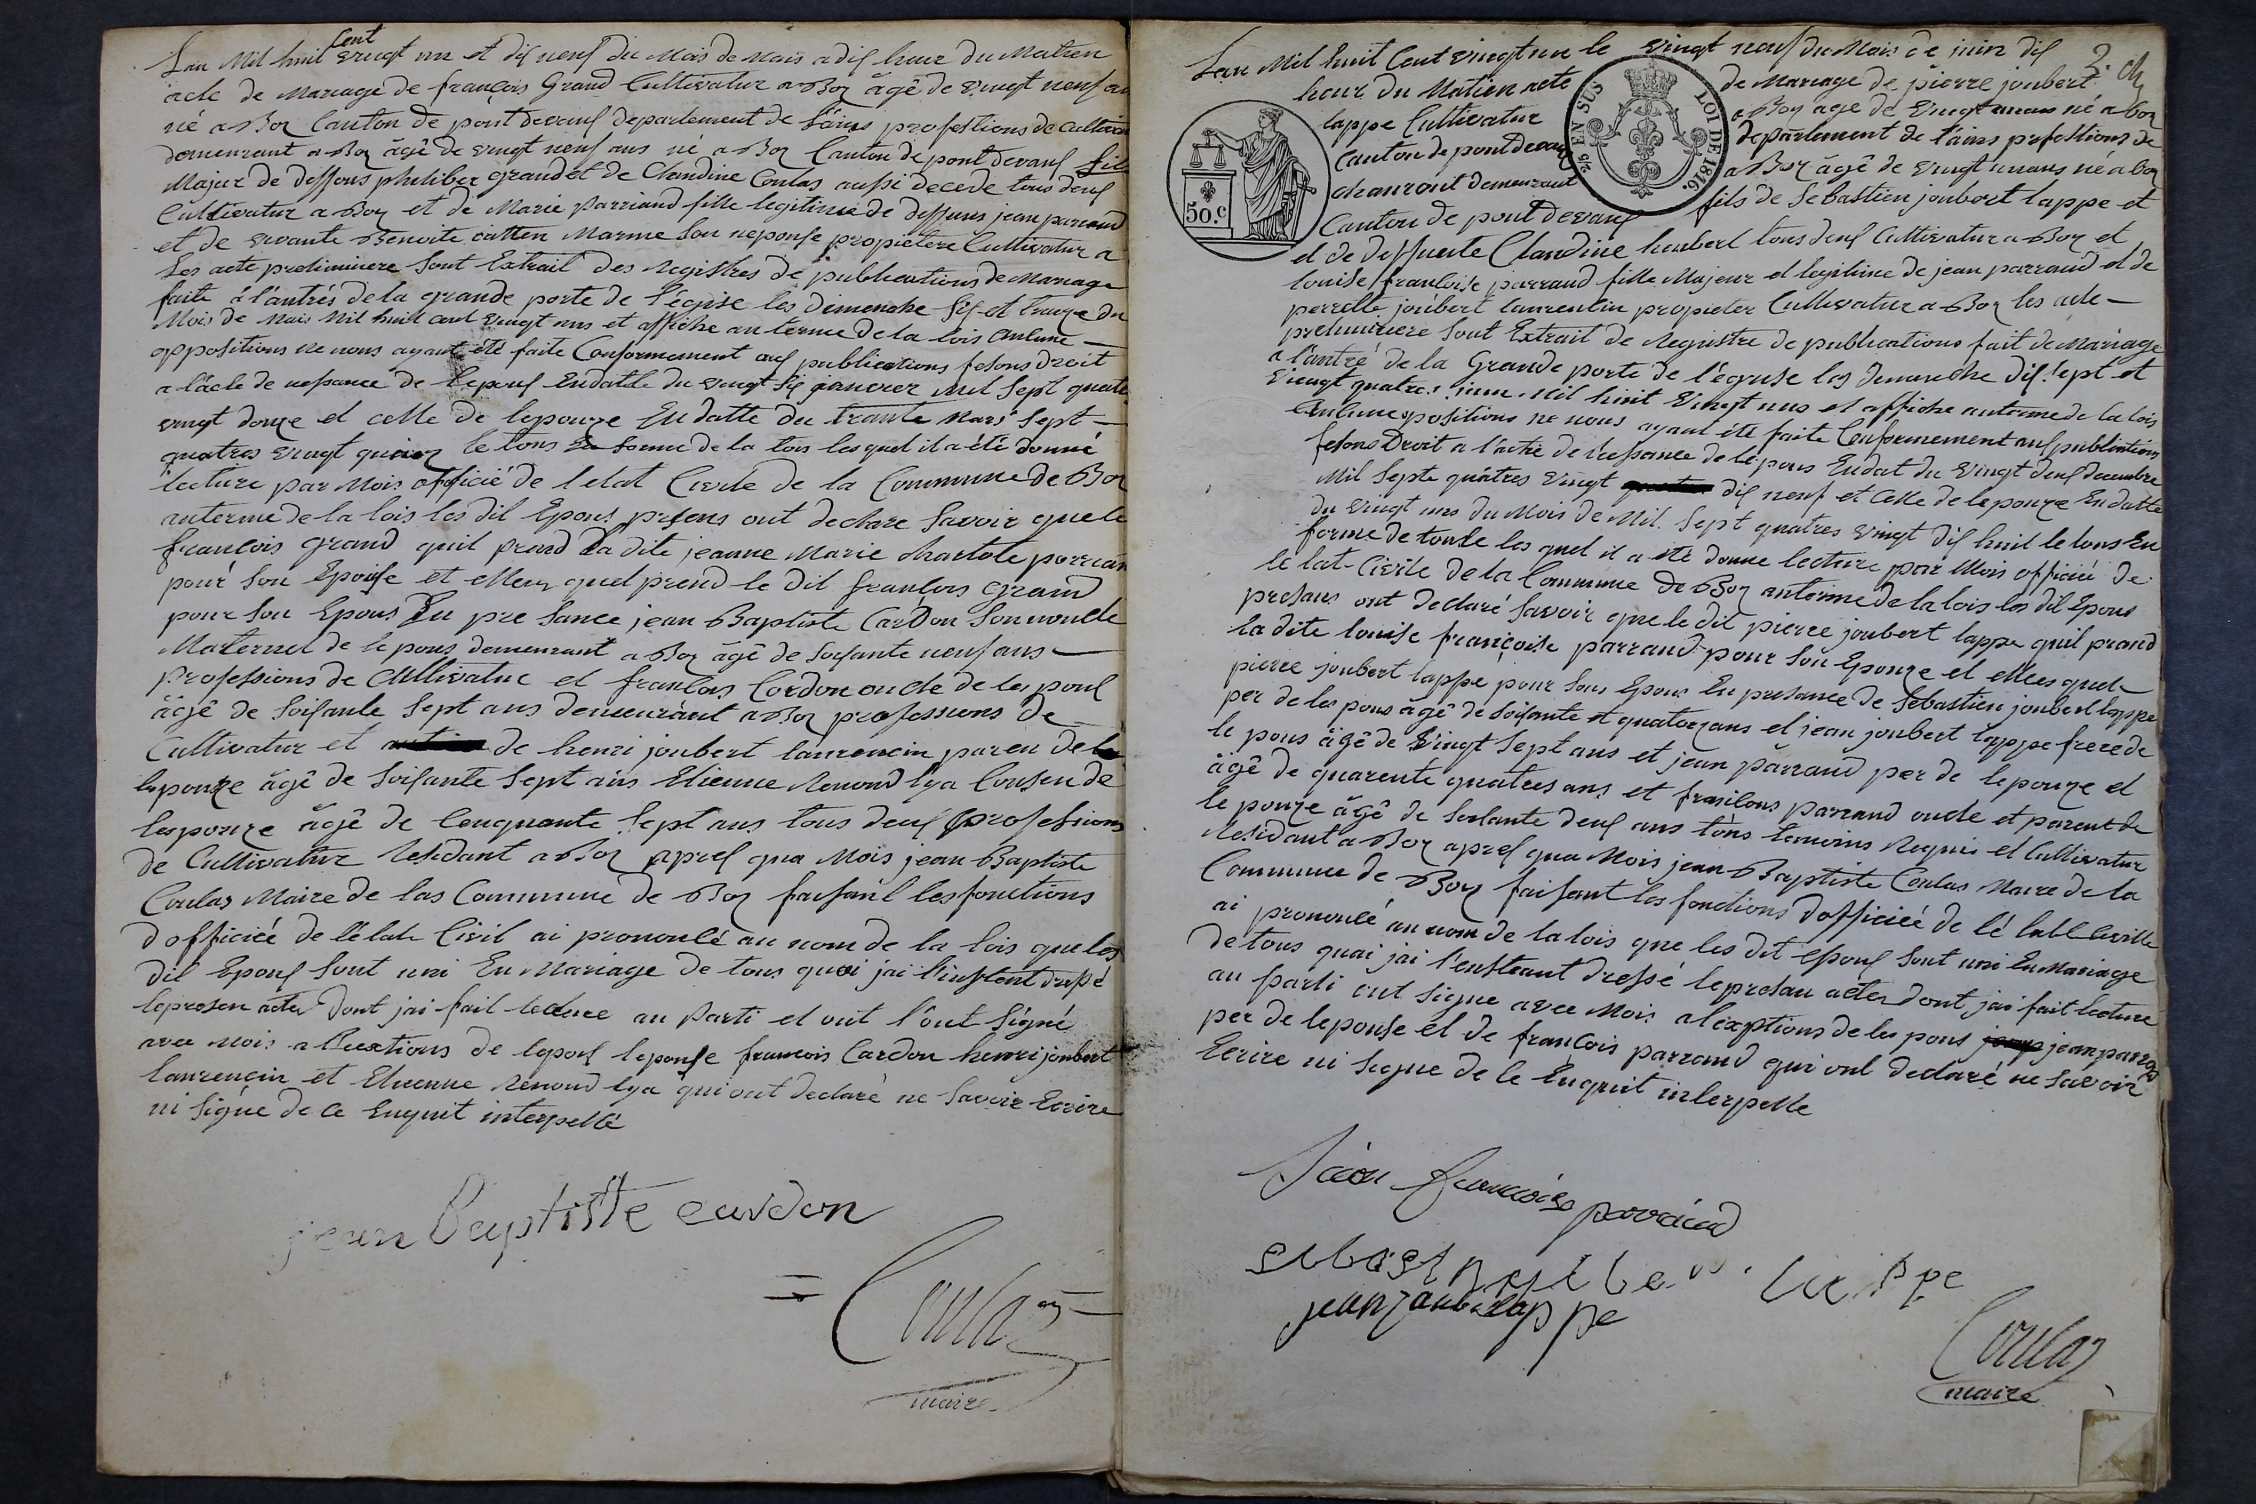 Lan Mil huil Cent vingt un et dix neuf du Mois de Mais a dix heur du Matien
acte de Mariage de françois Grand Cultivatur a Boz âgê de vingt neuf an
né a Boz Canton de pont devauf departement de l'âins profestions de Cultiva
demeurant a Boz âgê de vingt neuf ans né a Boz Canton de pont devauf fils
Majeur de deffons philiber grand et de Claudine Coulas aussi decede tous deuf
Cultivatur a Boz et de Marie Parriaud fille legitimie de deffuns jean parraud
et de vivante Benoite catten Marme son neponse propietere Cultivatur a
Les acte preliminere sont Extrait des Registres de publications de Mariage
faite â l'antrés de la grande porte de l'église les dimenche six et traize du
Mois de Mais Mil huit cent vingt uns et affiche au terme de la lois Aucune
oppositions ne nous ayant été faite Conformement aux publications fesons Droit
a lâcle de nessance de l'epouf Endatte du vingt six janvier Mil sept quatre
vingt douze et celle de lepouze En datte du trante Mars sept
quatres vingt quinze le tous En forme de la lois les quel il a été donné
lecture par Mois officié de l'etat Civile de la Commune de Boz
auterme de la lois les dil Epous presens ont declare savoir que le
françois grand quil prend la dite jeanne Marie charlote parriau
pour son Epouse et elleu quel prend le dil françois grand
pour son Epous En pre sance jean Baptiste Cardon son noncle
Maternel de lepous demeurant a Boz âgê de soisante neuf ans
professions de Cultivatur et françois Cordon oncle de les pouf
âgê de soisante sept ans demeurânt a Boz professions de
Cultivatur et de henri joubert laurencin paren de
lepouze âgê de soisante sept ans Etienne Renoud lya Cousen de
lesponze âgê de Cenquante sept ans tous deuf professions
de Cultivatur Residant a Boz apref qua Mois jean Baptiste
Coulas Maire de las Commune de Boz faisant les fonctions
d officiéé de l'élat Civil ai prononcé au nom de la lois que les
dil Epouf sont uni En Mariage de tous quoi jai l'instent dressé
lepresen acter dont jai fait lecture au Parti et ont l'ont signé
avec Mois a lexections de lepouf lepouse françois Cardon henri joubert
laurencin et Etienne Renoud lya qui ont declaré ne savoir Ecrire
ni signe de ce Enquit interpellé
jean baptiste cardon
Coulas
maire
2.
Lan Mil huit Cent vingt un le vingt neuf du Mois de juin dix
heur du Matien acte de Mariage de pierre joubert
lappe Cultivatur a Boz âge de vingt unans né a boz
Canton de pont devauf departement de l'ains profestions de
demeurant a Boz âgê de vingt unans né a boz
Canton de pont devauf fils de Sebastien joubert lappe et
et de deffuente Claudine houbert tous deuf Cultivatur a Boz et
louise françoise parraud fille Majeur et legitime de jean parraud et de
perrette joubert laurentin propieter Cultivatur a Boz les acte
preliminiere sont Extrait de Registre de publications fait de Mariage
a l'antré de la Grande porte de l'égluse les demanche dix sept et
vieugt quatre juin Mil huit vingt uns et affiche auterme de la lois
Aucune positions ne nous ayant été faite Conformement aux publications
fesons Droit a l'actre de Nessance de lépous Endat du vingt deuf decembre
Mil septe quâtres vingt dix neuf et Celle de lepouze En datte
du vingt uns du Mois de Mil. sept quatres vingt dix huit le tous En
forme de toute les quel il a été donne lecture par Mois officié de
le lat-Civile de la Commune de Boz anterme de la lois les dil Epous
presans ont declaré savoir que le dit pierre joubert lappe quil prand
la dite louise françoise parraud pour son Eponze et elles quel
pierre joubert lappe pour sons Epous En presance de Sebastien joubert lappe
per de les pous âgê de soisante et quatorzans et jean joubert lappe frere de
le pous âgê de vingt sept ans et jean parraud per de lepouze et
âgê de quarente quatres ans et françlons parraud oncle et parent de
le pouze âgê de soisante deuf ans tôns temoins Requis et Cultivatur
Residant a Boz apref qua Mois jean Baptiste Coulas Maire de la
Commune de Boz faisant les fonctions d officiéé de lé tatl Civille
ai prononcé au nom de la lois que les dit epouf sont uni En Mariage
de tous quai jai l'ensteant dressé lepresau acter dont jai fait lecture
au parti ont signe avec Mois alexptions de les pous jean parraud
per de leponse et de françois parraud qui ont declaré ne savoir
Ecrire ni signe de le Enquit interpelle
50.C
2/5 EN SUS
LOI DE 1816.
françoise parraud
lappe
jean joubert lappe
Coulas
maire